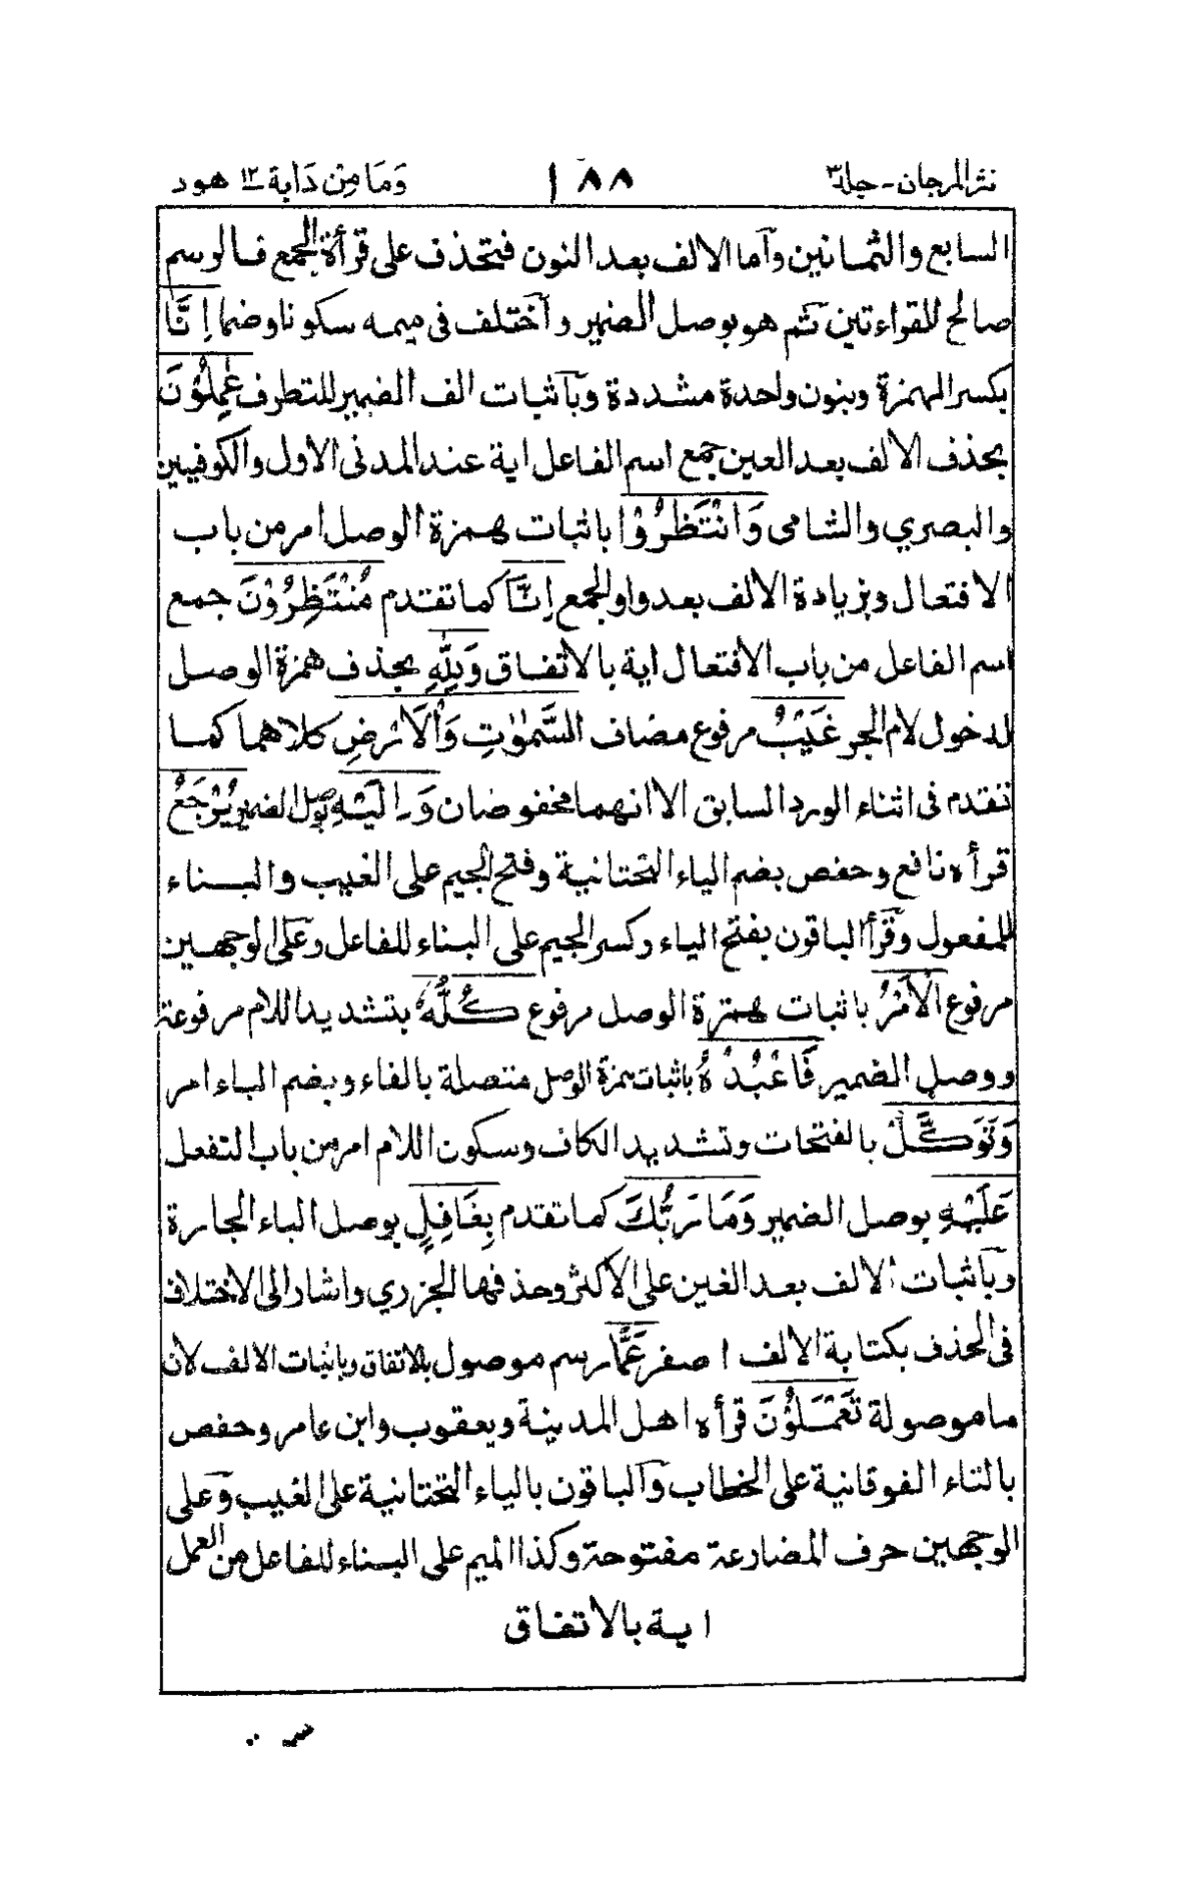 نثر المرجان - جلد ٣ ١٨٨ وَمَا مِنْ دَابة ١٢ هود
السابع والثمانين وآما الالف بعد النون فتحذف على قرأة الجمع فالرسم
صالح للقراءتين ثم هو بوصل الضمير وآختلف فى ميمه سكونا وضما اِنَّا
بكسر الهمزة وبنون واحدة مشددة وبآثبات الف الضمير للتطرف عٰمِلُوْنَ
بحذف الالف بعد العين جمع اسم الفاعل اية عند المدنى الاول والكوفيين
والبصري والشامى وَانْتَظِرُوْا باثبات همزة الوصل امر من باب
الافتعال وبزيادة الالف بعد واو الجمع اِنَّا كما تقدم مُنْتَظِرُوْنَ جمع
اسم الفاعل من باب الافتعال اية بالاتفاق وَلِلّٰهِ بحذف همزة الوصل
لدخول لام الجر غَيْبُ مرفوع مضاف السَّمٰوٰتِ وَالْاَرْضِ كلاهما كما
تقدم فى اثناء الورد السابق الا انهما مخفوضان وَاِلَيْهِ بوصل الضمير يُرْجَعُ
قرأه نافع وحفص بضم الياء التحتانية وفتح الجيم على الغيب والبناء
للمفعول وقرأ الباقون بفتح الياء وكسر الجيم على البناء للفاعل وعلى الوجهين
مرفوع الْاَمْرُ باثبات همزة الوصل مرفوع كُلُّهٗ بتشديد اللام مرفوعة
ووصل الضمير فَاعْبُدْهُ باثبات همزة الوصل متصلة بالفاء وبضم الباء امر
وَتَوَكَّلْ بالفتحات وتشديد الكاف وسكون اللام امر من باب التفعل
عَلَيْهِ بوصل الضمير وَمَا رَبُّكَ كما تقدم بِغَافِلٍ بوصل الباء الجارة
وبآثبات الالف بعد الغين على الاكثر وحذفها الجزري واشار الى الاختلاف
فى الحذف بكتابة الالف ا صفر عَمَّا رسم موصول بالاتفاق وباثبات الالف لان
ما موصولة تَعْمَلُوْنَ قرأه اهل المدينة ويعقوب وابن عامر وحفص
بالتاء الفوقانية على الخطاب وآلباقون بالياء التحتانية على الغيب وعلى
الوجهين حرف المضارعة مفتوحة وكذا الميم على البناء للفاعل من العمل
اية بالاتفاق